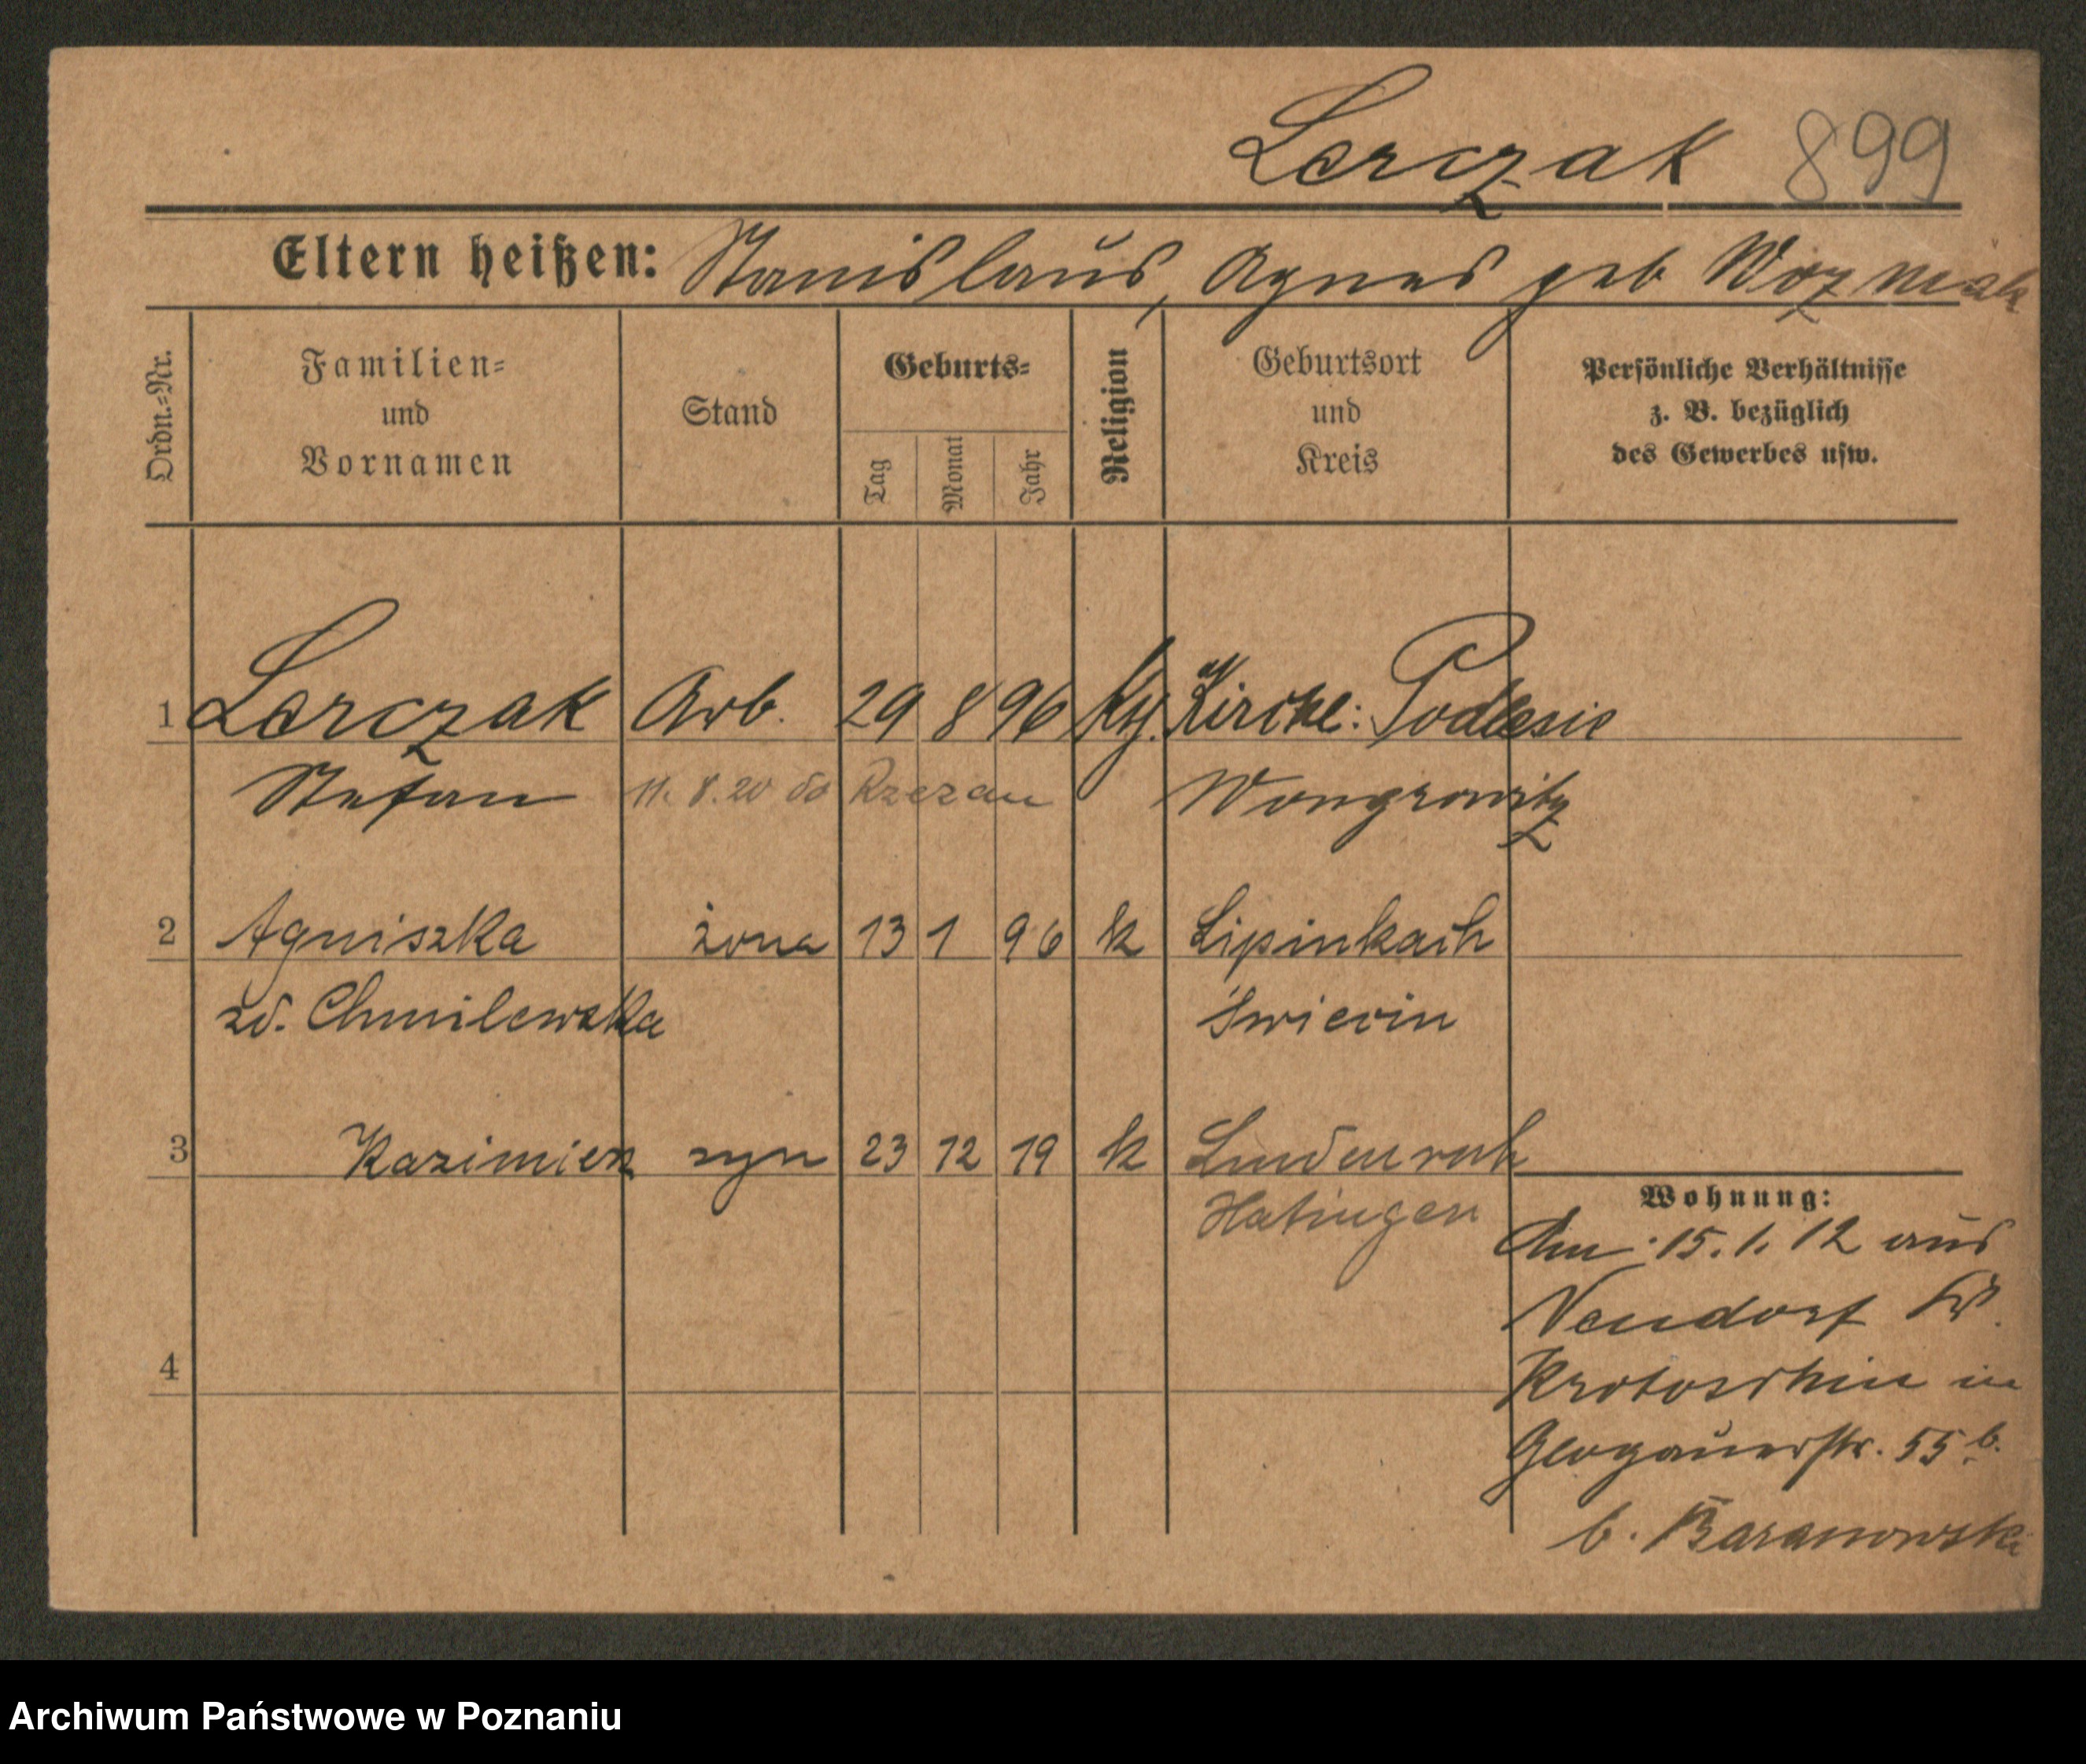 Lerczak 899
Eltern heißen: Stanislaus, Agnes geb Wozniak
Ordn.=Nr.
Familien=
und
Vornamen
Stand
Geburts=
Tag
Monat
Jahr
Religion
Geburtsort
und
Kreis
Persönliche Verhältnisse
z. B. bezüglich
des Gewerbes usw.
1 Lerczak Arb. 29 8 96 Podlesie
Stefan 11. 8. 20 do Wongrowitz
2 Agniszka żona 13 1 96 k Lipinkach
zd. Chmilewska
3 Kazimierz syn 23 12 19 k
Hatingen
Wohnung:
Am 15. 1. 12 aus
Neudorf Kr.
Krotoschin in
Glogauerstr. 55 b.
b. Baranowski
4
Archiwum Państwowe w Poznaniu